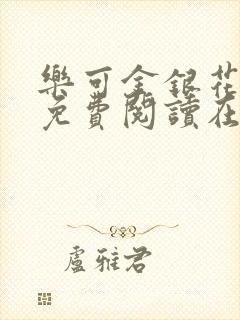 樂可金銀花
免費閱讀在
盧雅君